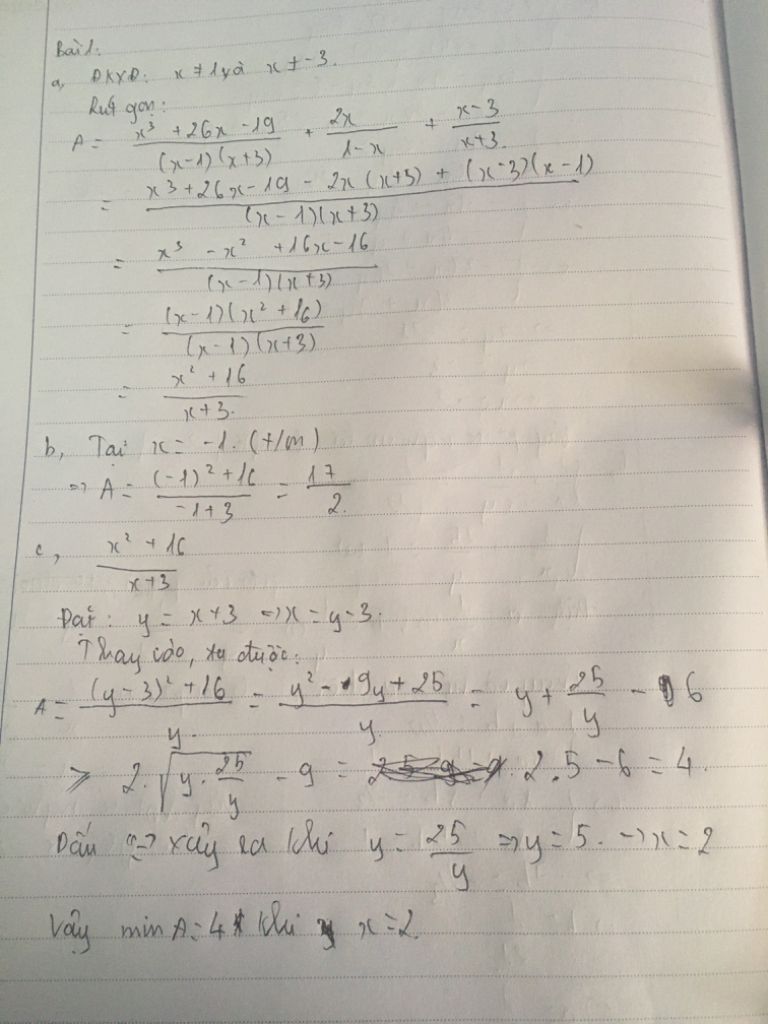 Bài 1:
a, ĐKXĐ: x ≠ 1 và x ≠ -3.
Rút gọn:
A = (x³ + 26x - 19)/((x-1)(x+3)) + 2x/(1-x) + (x-3)/(x+3).
= (x³ + 26x - 19 - 2x(x+3) + (x-3)(x-1))/((x-1)(x+3))
= (x³ - x² + 16x - 16)/((x-1)(x+3))
= ((x-1)(x² + 16))/((x-1)(x+3))
= (x² + 16)/(x+3).
b, Tại x = -1. (t/m)
=> A = ((-1)² + 16)/(-1+3) = 17/2.
c, (x² + 16)/(x+3)
Đặt: y = x+3 => x = y-3.
Thay vào, ta được:
A = ((y-3)² + 16)/y. = (y² - 9y + 25)/y. = y + 25/y - 6
≥ 2.√(y. 25/y) - 9 = 2.5 - 6 = 4.
Dấu "=" xảy ra khi y = 25/y => y = 5. -> x = 2
Vậy min A = 4 khi x = 2.